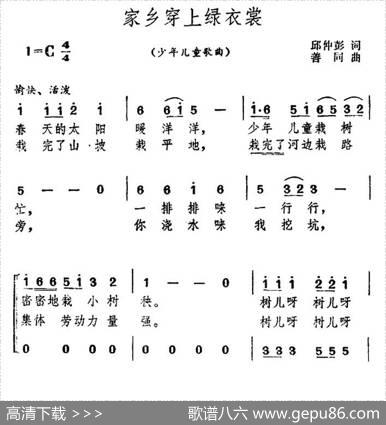 家乡穿上绿衣裳
1=C 4/4
(少年儿童歌曲)
邱仲彭 词
善同 曲
愉快、活泼
i i i 2 i 6 6 5 i 5 i·6 5 i 6 5 3 5
春天的太阳 暖洋洋, 少年儿童栽树
栽完了山坡 栽平地, 栽完了河边栽路
5 — — 0 6 6 i 6 5 3 2 3 — 0
忙, 一排排唻 一行行,
旁, 你浇水唻 我挖坑,
i 6 6 5 i 3 2 1 — — 0 i i i 2 2 i
密密地栽 小树秧。 树儿呀 树儿呀
集体 劳动力量强。 树儿呀 树儿呀
0 0 0 0 0 0 0 0 3 3 3 5 5 5
高清下载 >>> 歌谱八六 www.gepu86.com